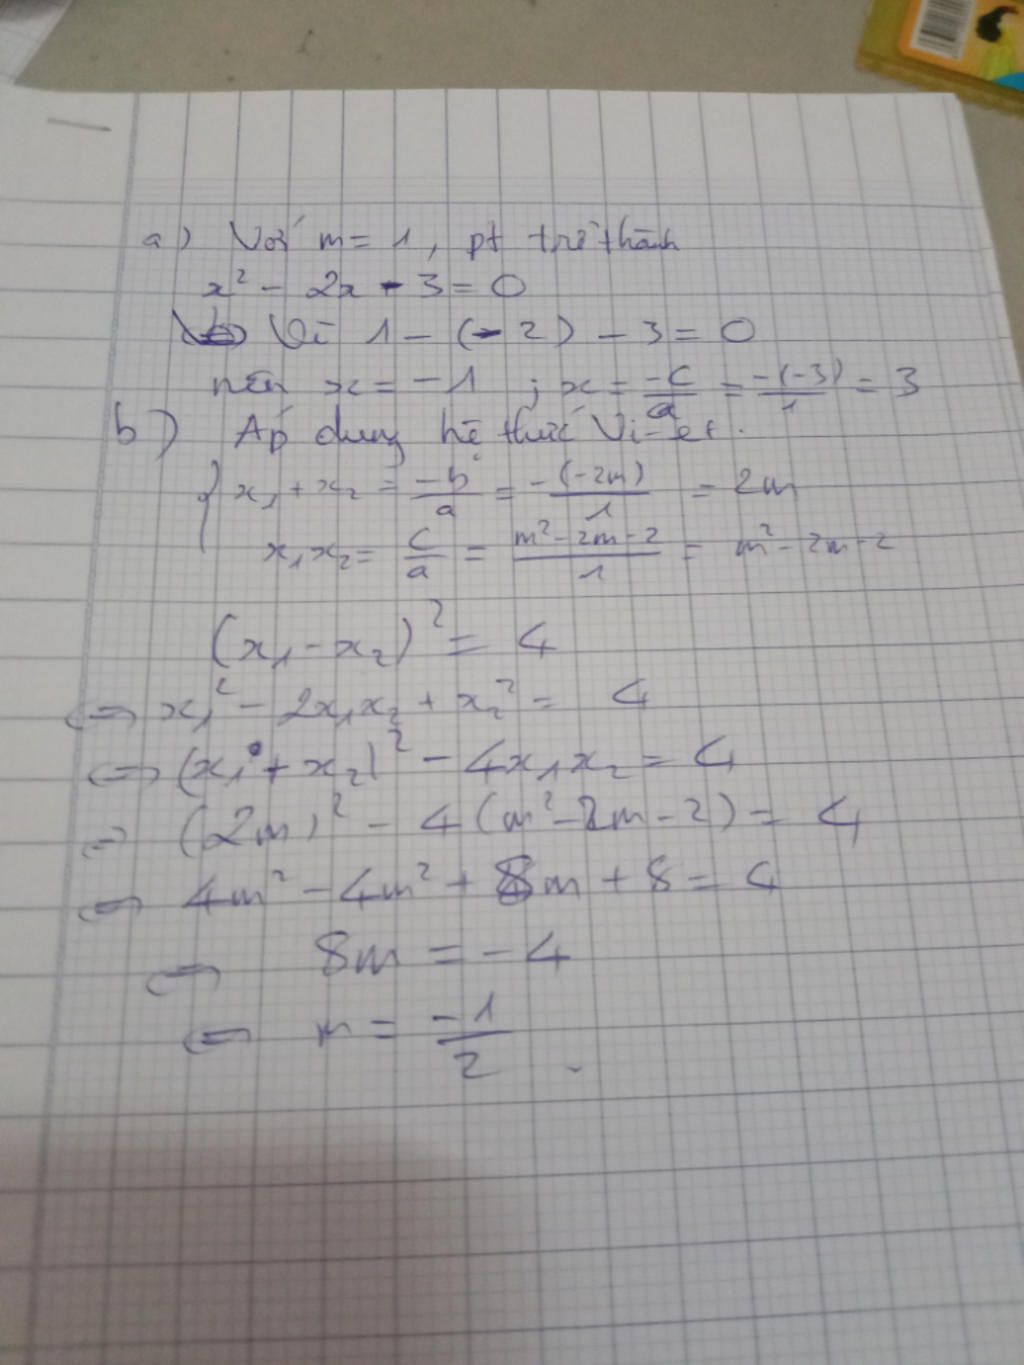 a) Với m = 1, pt trở thành
x² - 2x - 3 = 0
Vì 1 - (-2) - 3 = 0
nên x = -1 ; x = -c/a = -(-3)/1 = 3
b) Áp dụng hệ thức Vi-et.
{ x₁ + x₂ = -b/a = -(-2m)/1 = 2m
x₁x₂ = c/a = (m² - 2m - 2)/1 = m² - 2m - 2
(x₁ - x₂)² = 4
⇔ x₁² - 2x₁x₂ + x₂² = 4
⇔ (x₁ + x₂)² - 4x₁x₂ = 4
⇒ (2m)² - 4(m² - 2m - 2) = 4
⇔ 4m² - 4m² + 8m + 8 = 4
⇔ 8m = -4
⇔ m = -1/2.